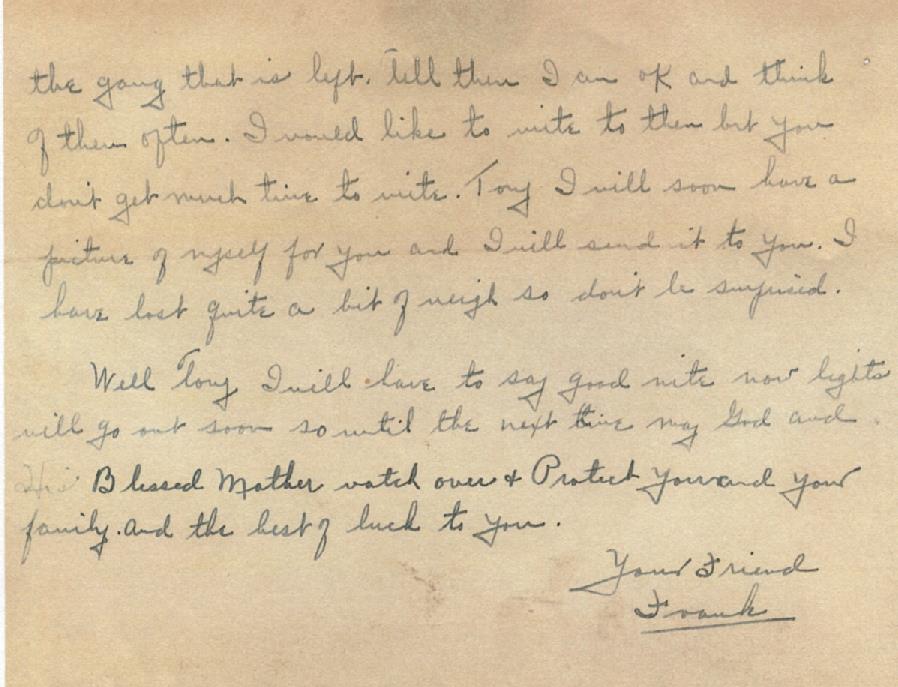 the gang that is left. Tell them I am OK and think
of them often. I would like to write to them but you
don't get much time to write. Tony I will soon have a
picture of myself for you and I will send it to you. I
have lost quite a bit of weigh so don't be surprised.
Well Tony I will have to say good nite now lights
will go out soon so until the next time may God and
His Blessed Mother watch over & Protect you and your
family. and the best of luck to you.
Your Friend
Frank